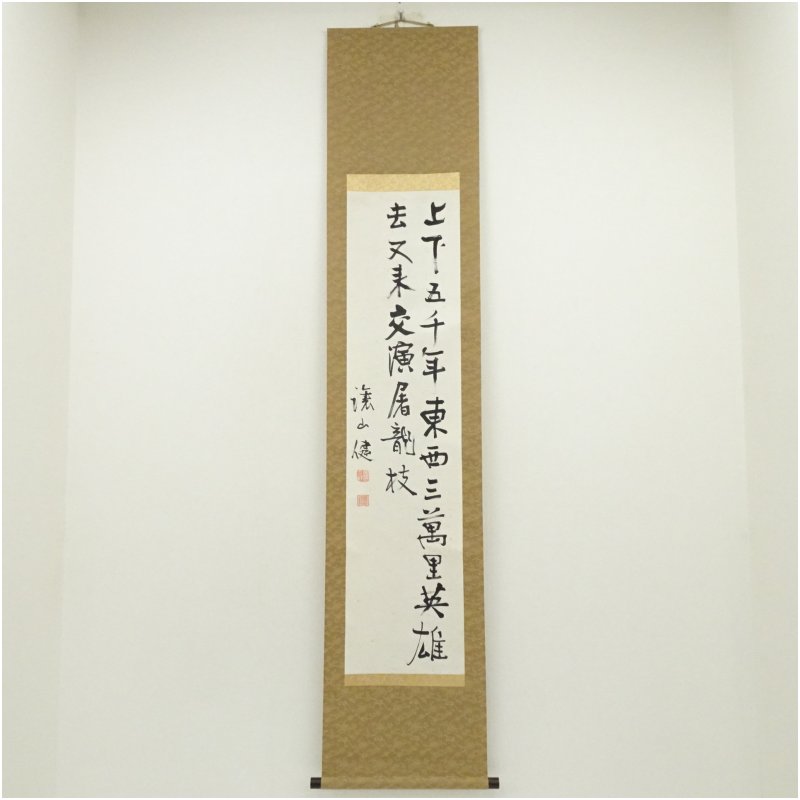 上下五千年東西三萬里英雄
去又来交演屠龍技
讓山健